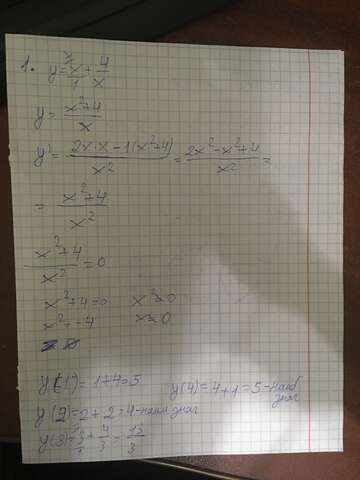 1. y = x/1 + 4/x
y = (x²+4)/x
y' = (2x·x - 1(x²+4))/x² = (2x² - x² + 4)/x² =
= (x²+4)/x²
(x²+4)/x² = 0
x²+4=0 x²≠0
x²=-4 x≠0
y(1) = 1+4=5 y(4) = 4+1 = 5 - наиб знач
y(2) = 2+2=4 - наим знач
y(3) = 3/1 + 4/3 = 13/3